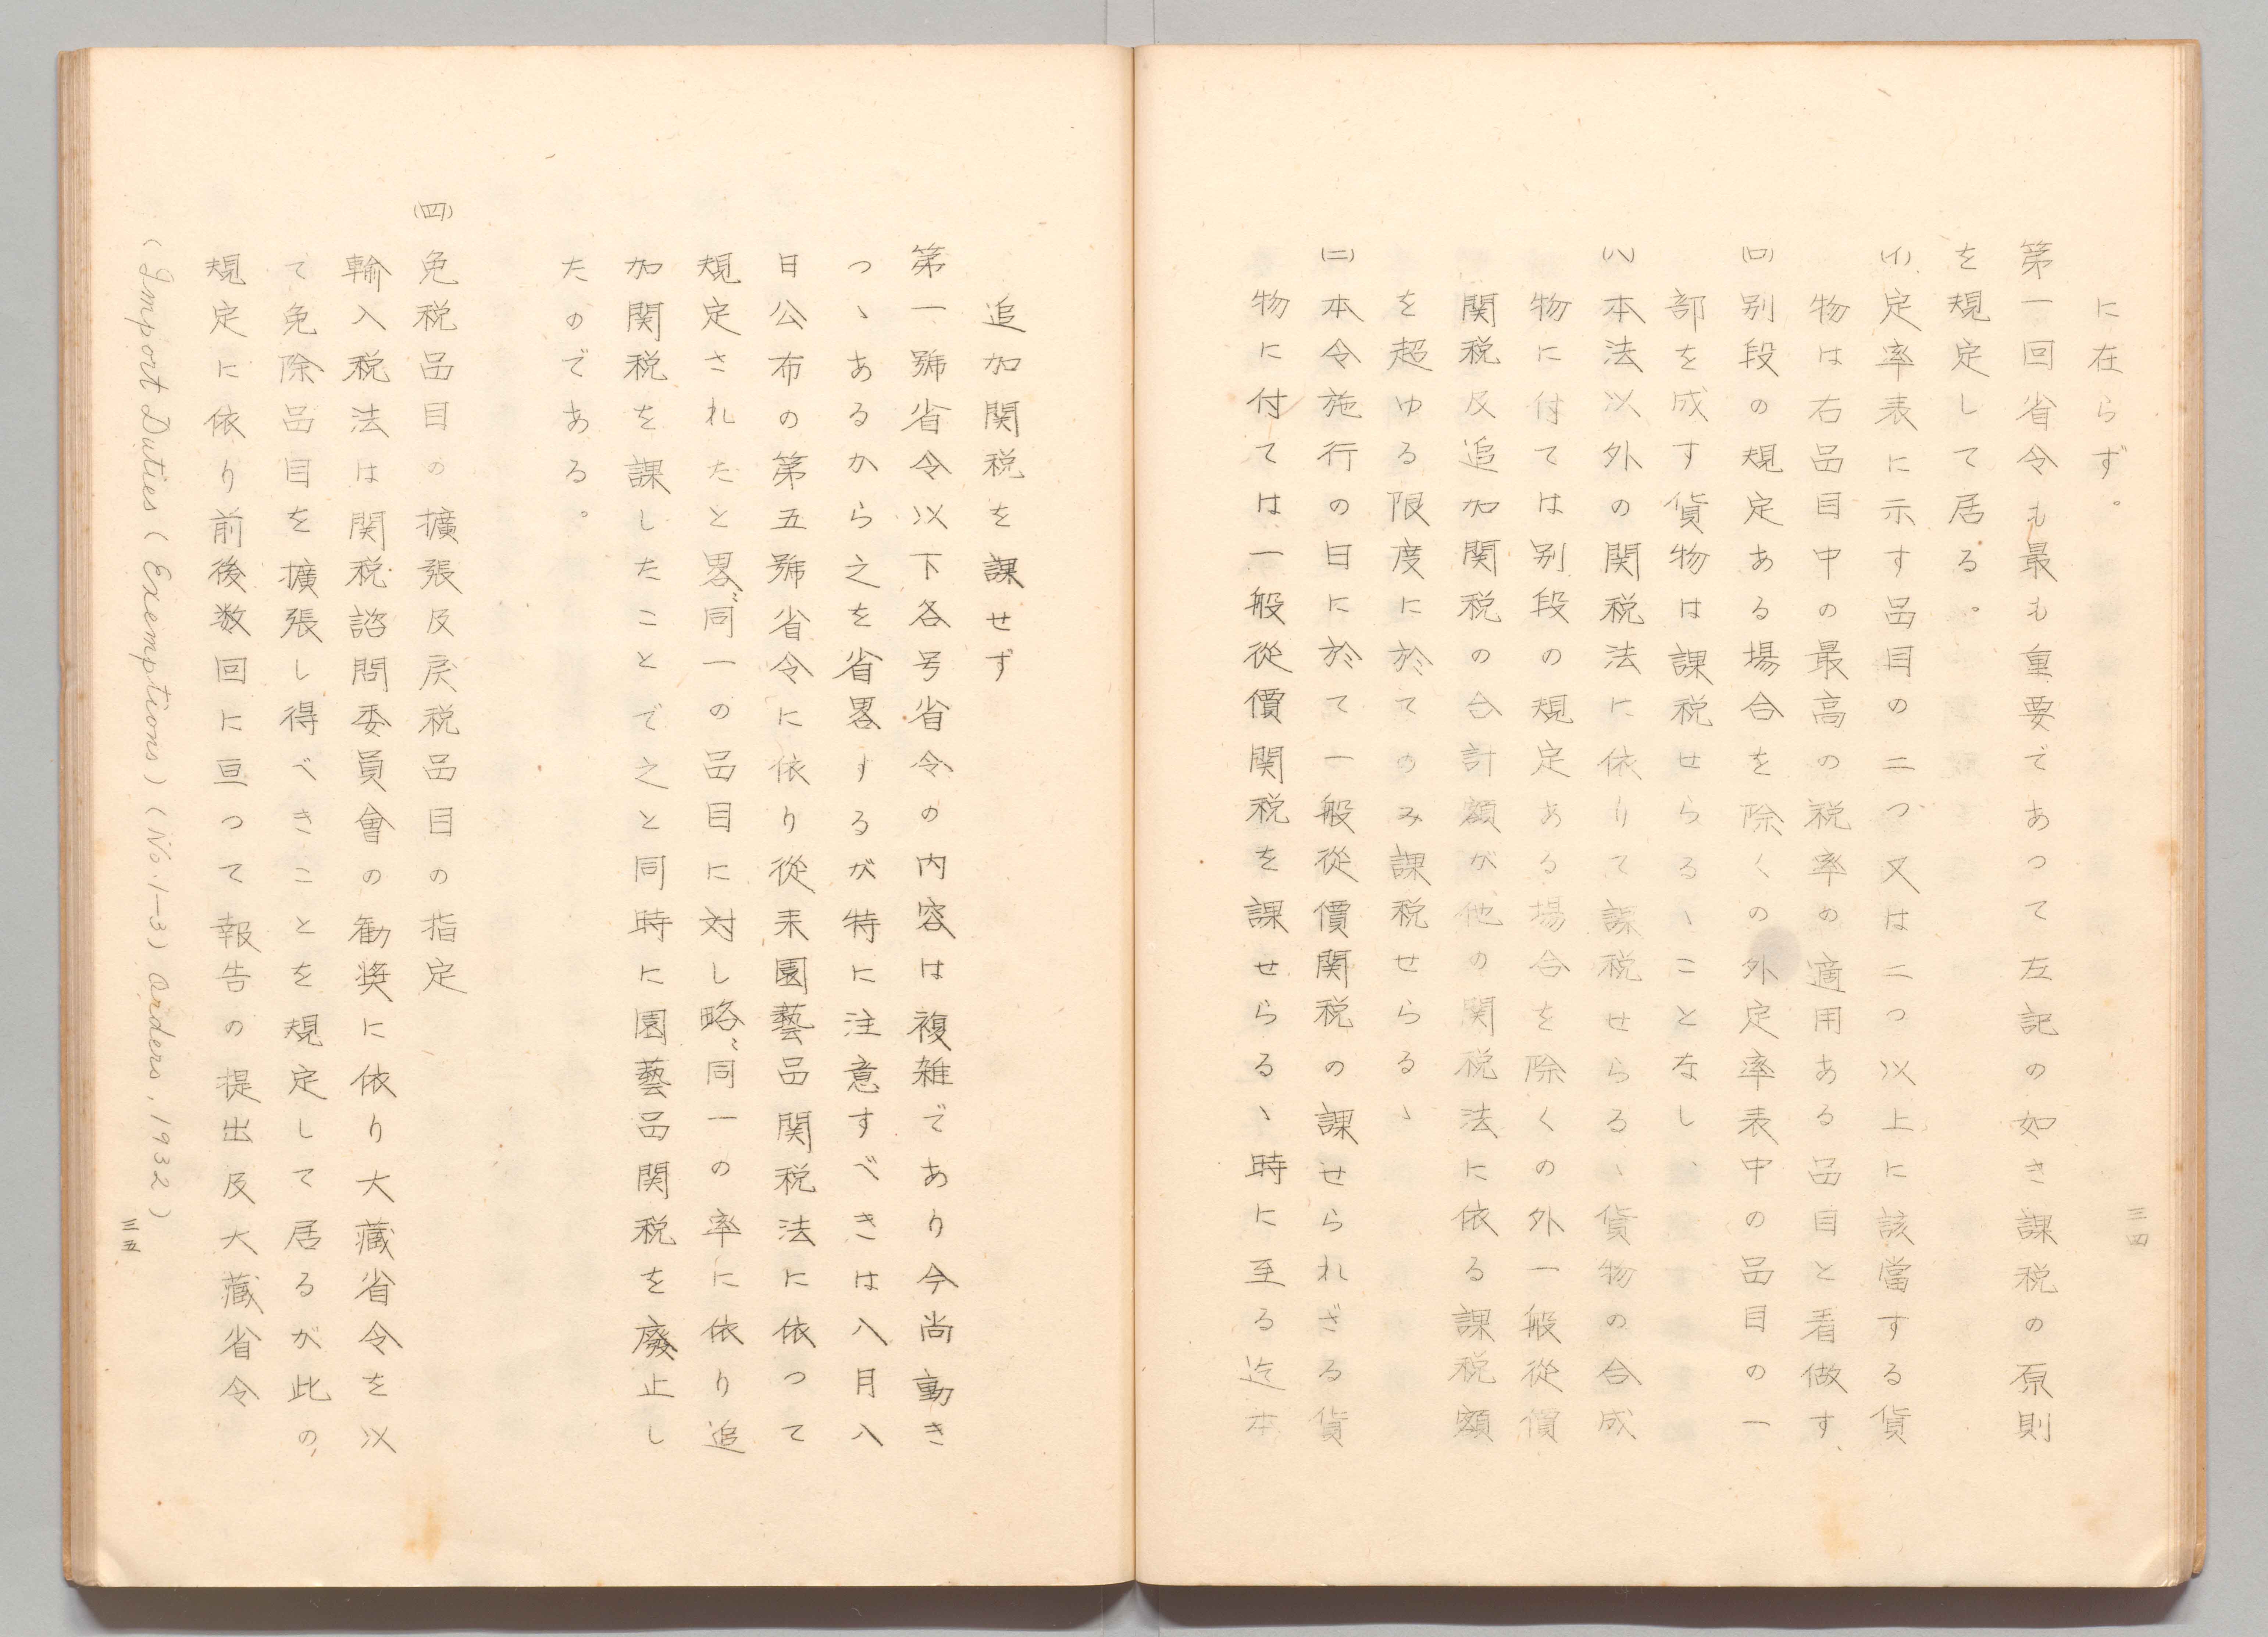 に在らず。
第一回省令も最も重要であって左記の如き課税の原則
を規定して居る。
(イ)定率表に示す品目の二つ又は二つ以上に該當する貨
物は右品目中の最高の税率の適用ある品目と看做す、
(ロ)別段の規定ある場合を除くの外定率表中の品目の一
部を成す貨物は課税せらるゝことなし、
(ハ)本法以外の関税法に依りて課税せらるゝ貨物の合成
物に付ては別段の規定ある場合を除くの外一般從價
関税及追加関税の合計額が他の関税法に依る課税額
を超ゆる限度に於てのみ課税せらるゝ
(ニ)本令施行の日に於て一般從價関税の課せられざる貨
物に付ては一般從價関税を課せらるゝ時に至る迄本
三四
追加関税を課せず
第一號省令以下各号省令の内容は複雑であり今尚動き
つゝあるから之を省畧するが特に注意すべきは八月八
日公布の第五號省令に依り從来園藝品関税法に依って
規定されたと畧〻同一の品目に対し略〻同一の率に依り追
加関税を課したことで之と同時に園藝品関税を廢止し
たのである。
(四)免税品目の擴張及戻税品目の指定
輸入税法は関税諮問委員會の勧奨に依り大藏省令を以
て免除品目を擴張し得べきことを規定して居るが此の、
規定に依り前後数回に亘つて報告の提出及大藏省令
(Import Duties (Exemptions) (No.1—3) orders, 1932)
三五